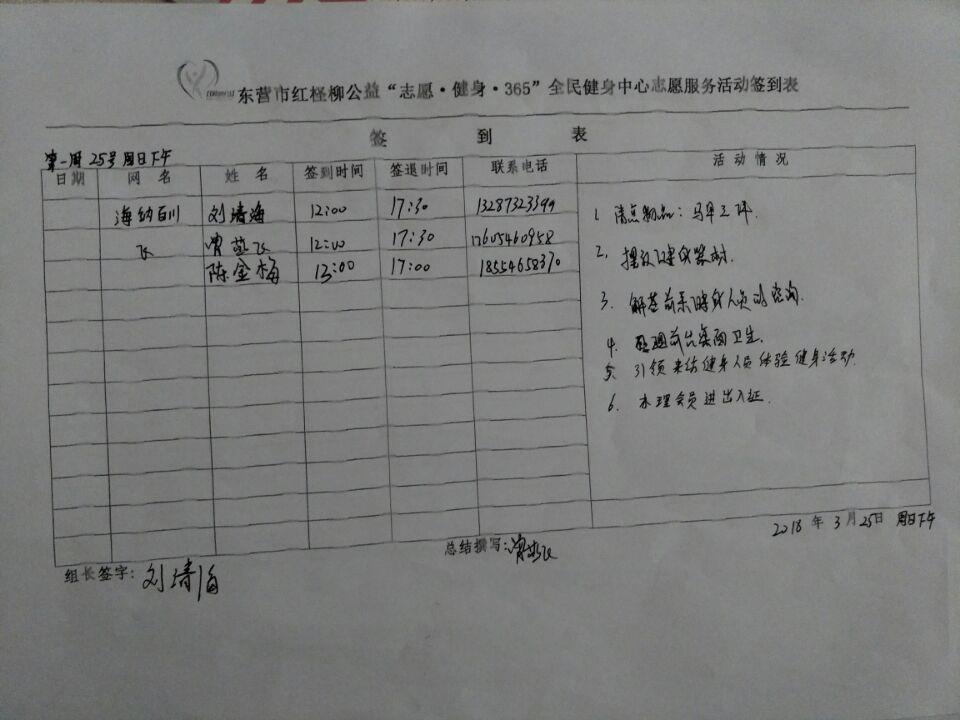 东营市红柽柳公益“志愿·健身·365”全民健身中心志愿服务活动签到表
签 到 表
第一周 25号 周日下午
日期 网名 姓名 签到时间 签退时间 联系电话 活动情况
海纳百川 刘清海 12:00 17:30 13287323399
飞 12:00 17:30 17605460958
陈金梅 13:00 17:00 18554658370
1. 清点物品:马甲三件.
2. 摆放健身器材.
3. 解答前来健身人员的咨询.
4. 整理前台桌面卫生.
5 引领来访健身人员体验健身活动.
6. 办理会员进出入证.
2018年3月25日 周日下午
组长签字: 刘清海
总结撰写: